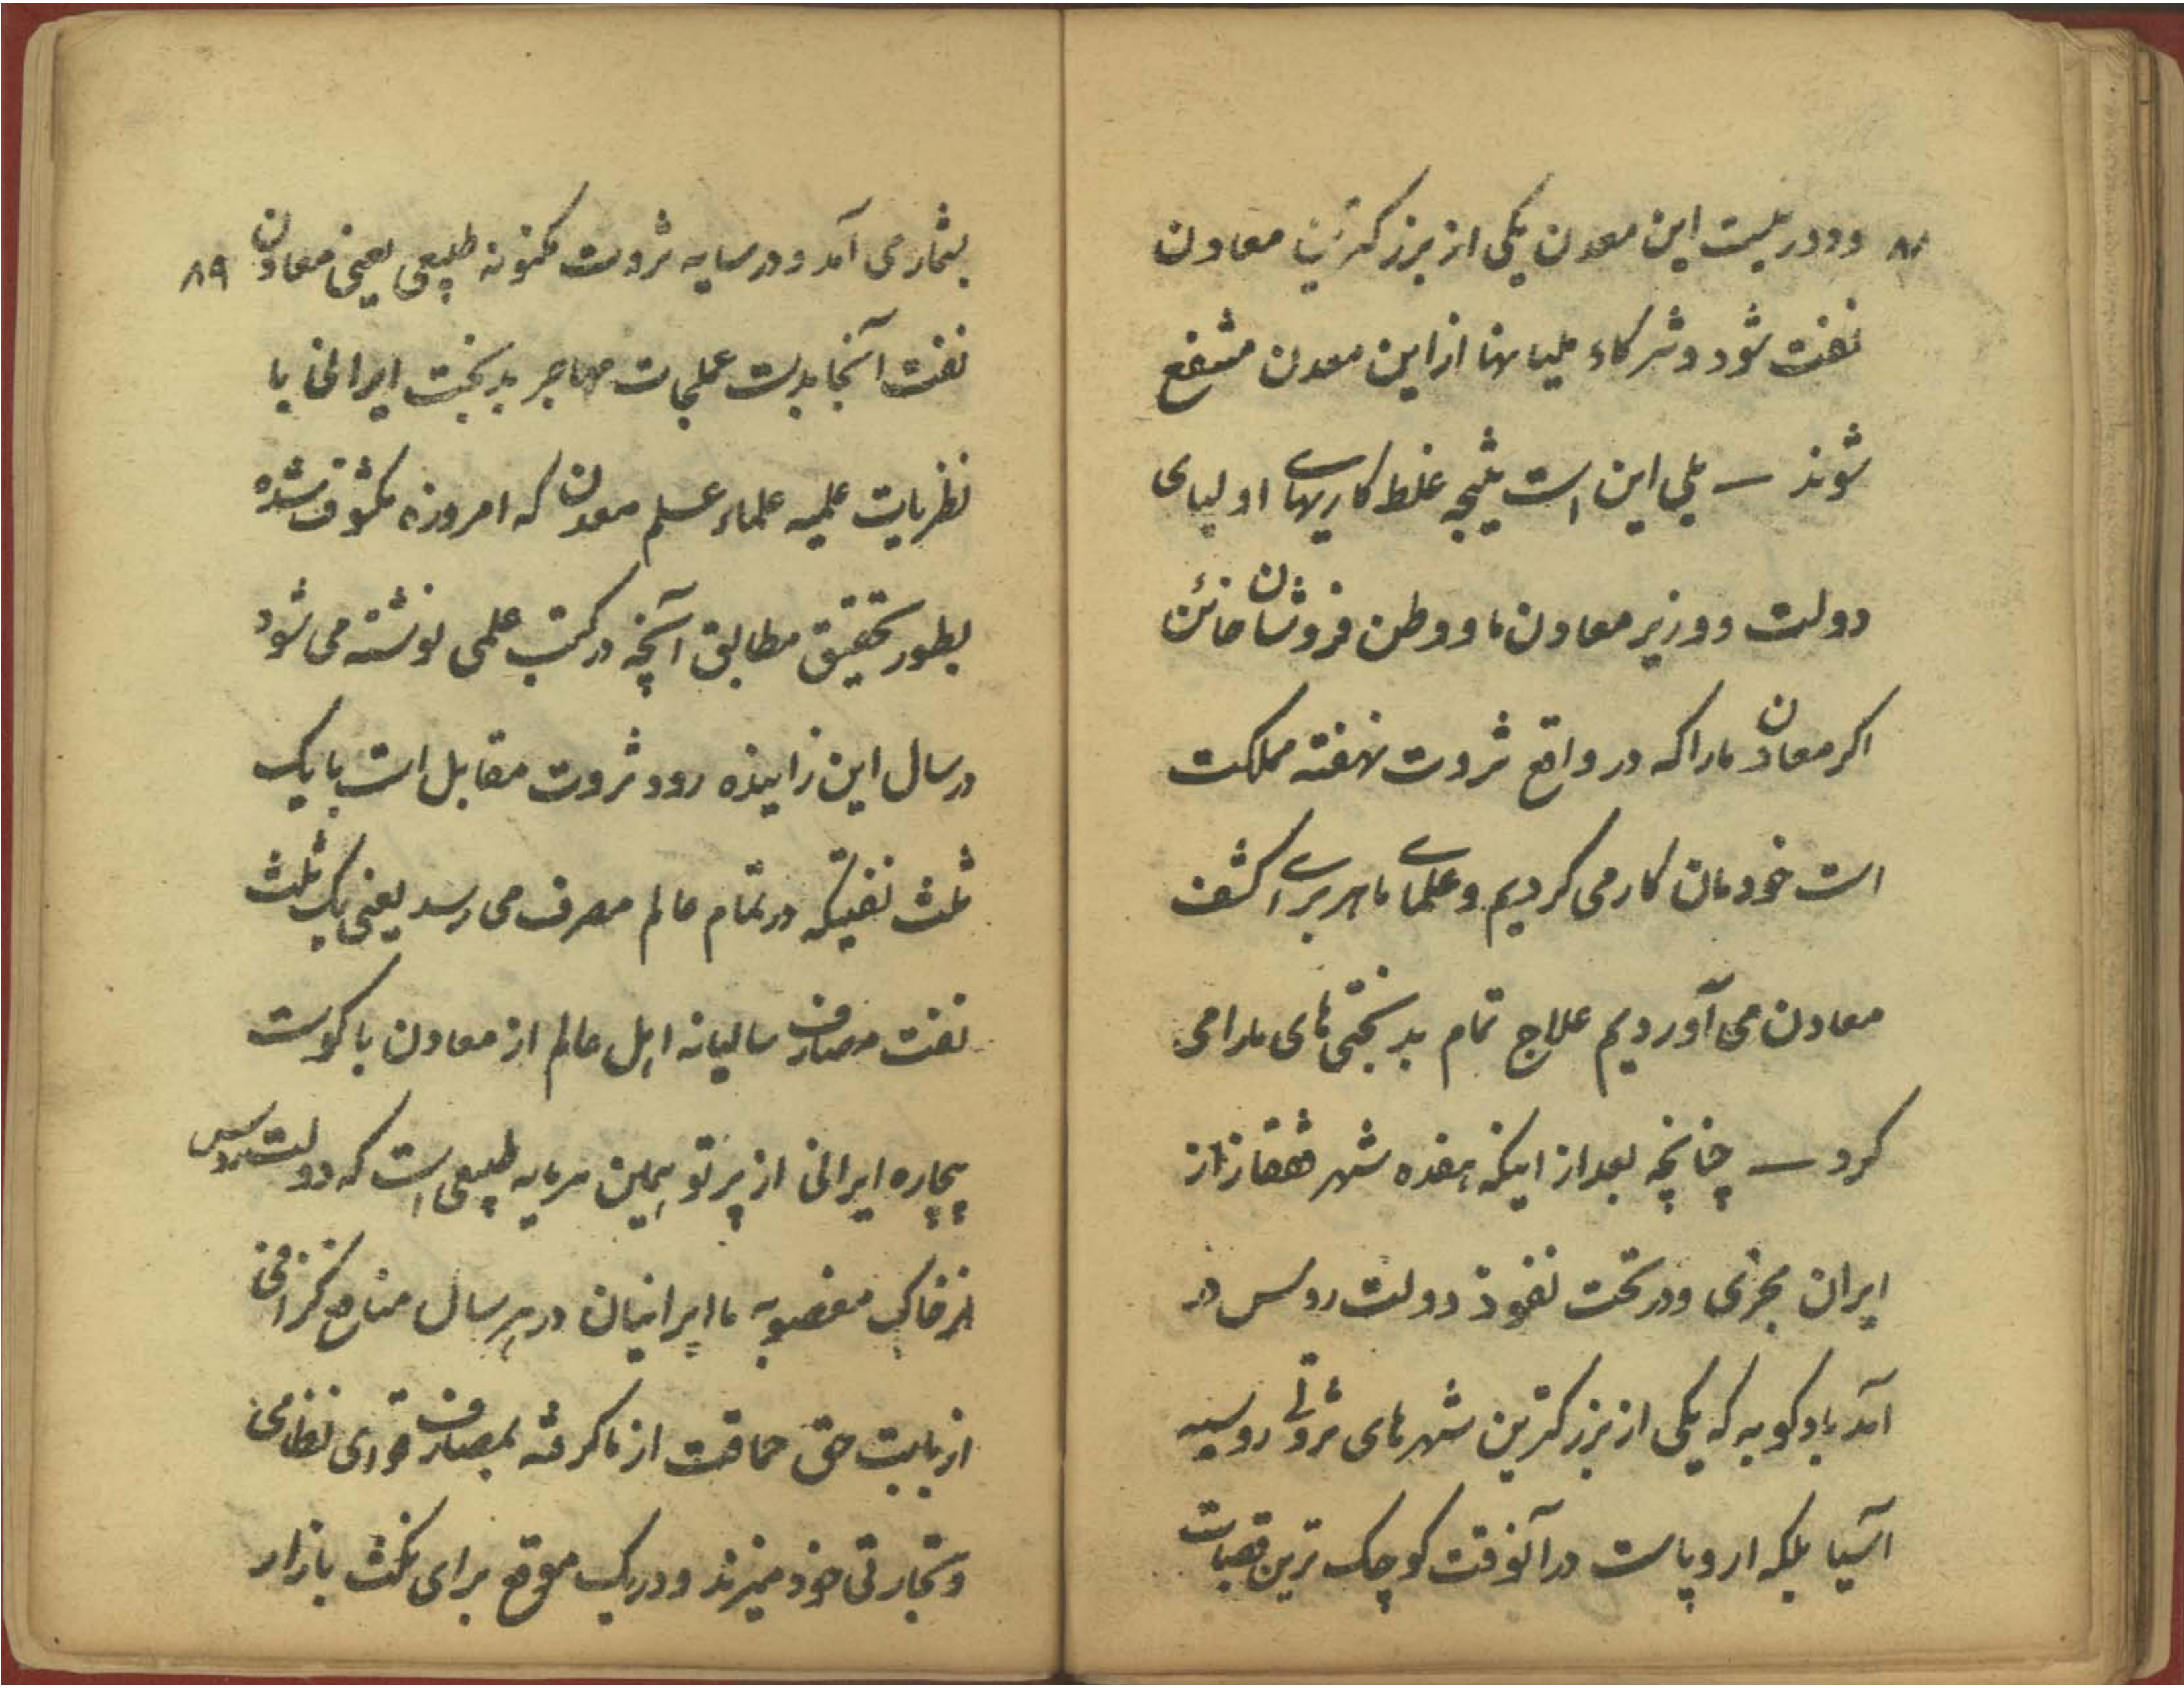 ۸۸ و در بیست این معدن یکی از بزرگترین معادن
نفت شود و شرکاء ملیانها از این معدن منتفع
شوند — بلی این است نتیجه غلط کاریهای اولیای
دولت و وزیر معادن ما و وطن فروشان خائن
اکر معادن ما را که در واقع ثروت نهفته مملکت
است خودمان کار می کردیم و علمای ماهر برای کشف
معادن می آوردیم علاج تمام بدبختی های ما را می
کرد — چنانچه بعد از اینکه هفده شهر قفقاز از
ایران مجزی و در تحت نفوذ دولت روس در
آمد بادکوبه که یکی از بزرکترین شهرهای ثروتی روسیه
آسیا بلکه اروپاست در آنوقت کوچک ترین قصبات
بشمار می آمد و در سایه ثروت مکنونه طبیعی یعنی معادن ۸۹
نفت آنجا بدست عملجات مهاجر بدبخت ایرانی با
نظریات علمیه علماء علم معدن که امروزه مکشوف شده
بطور تحقیق مطابق آنچه در کتب علمی نوشته می شود
در سال این زاینده رود ثروت مقابل است با یک
ثلث نفتیکه در تمام عالم مصرف می رسد یعنی یک ثلث
نفت مصارف سالیانه اهل عالم از معادن باکوست
بیچاره ایرانی از پرتو همین سرمایه طبیعی است که دولت روس
از خاک مغصوبه ما ایرانیان در هر سال منافع گزافی
از بابت حق حماقت از ما کرفته بمصارف قوای نظامی
و تجارتی خود میزند و در یک موقع برای نکث بازار